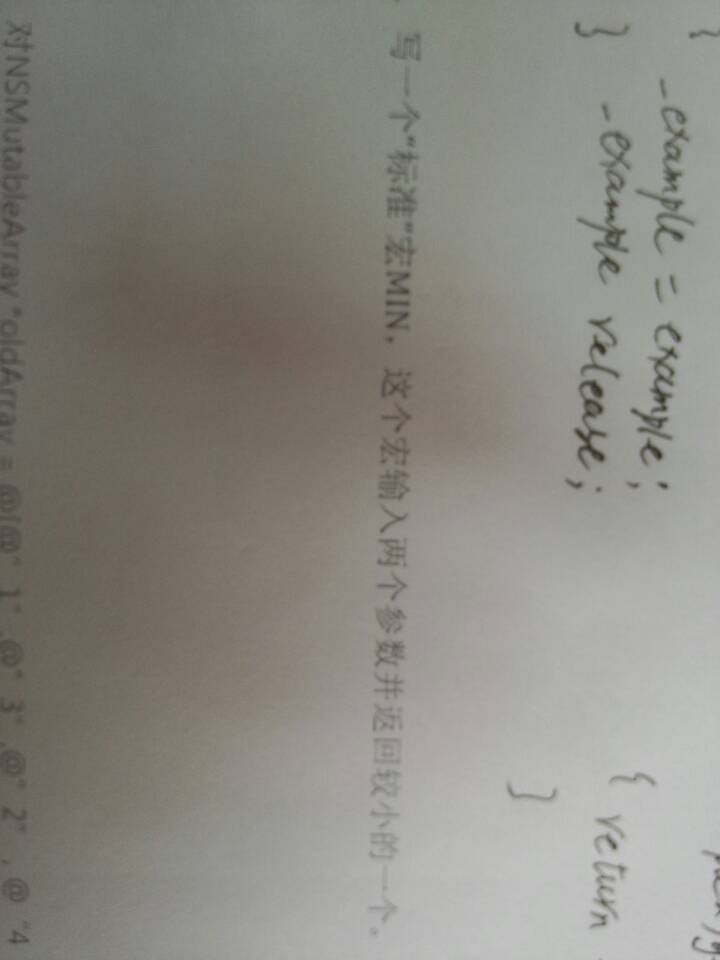 {
_example = example;
} _example release;
{ return
}
写一个“标准”宏MIN，这个宏输入两个参数并返回较小的一个。
对NSMutableArray *oldArray = @[@" 1" ,@" 3" ,@" 2" , @ "4